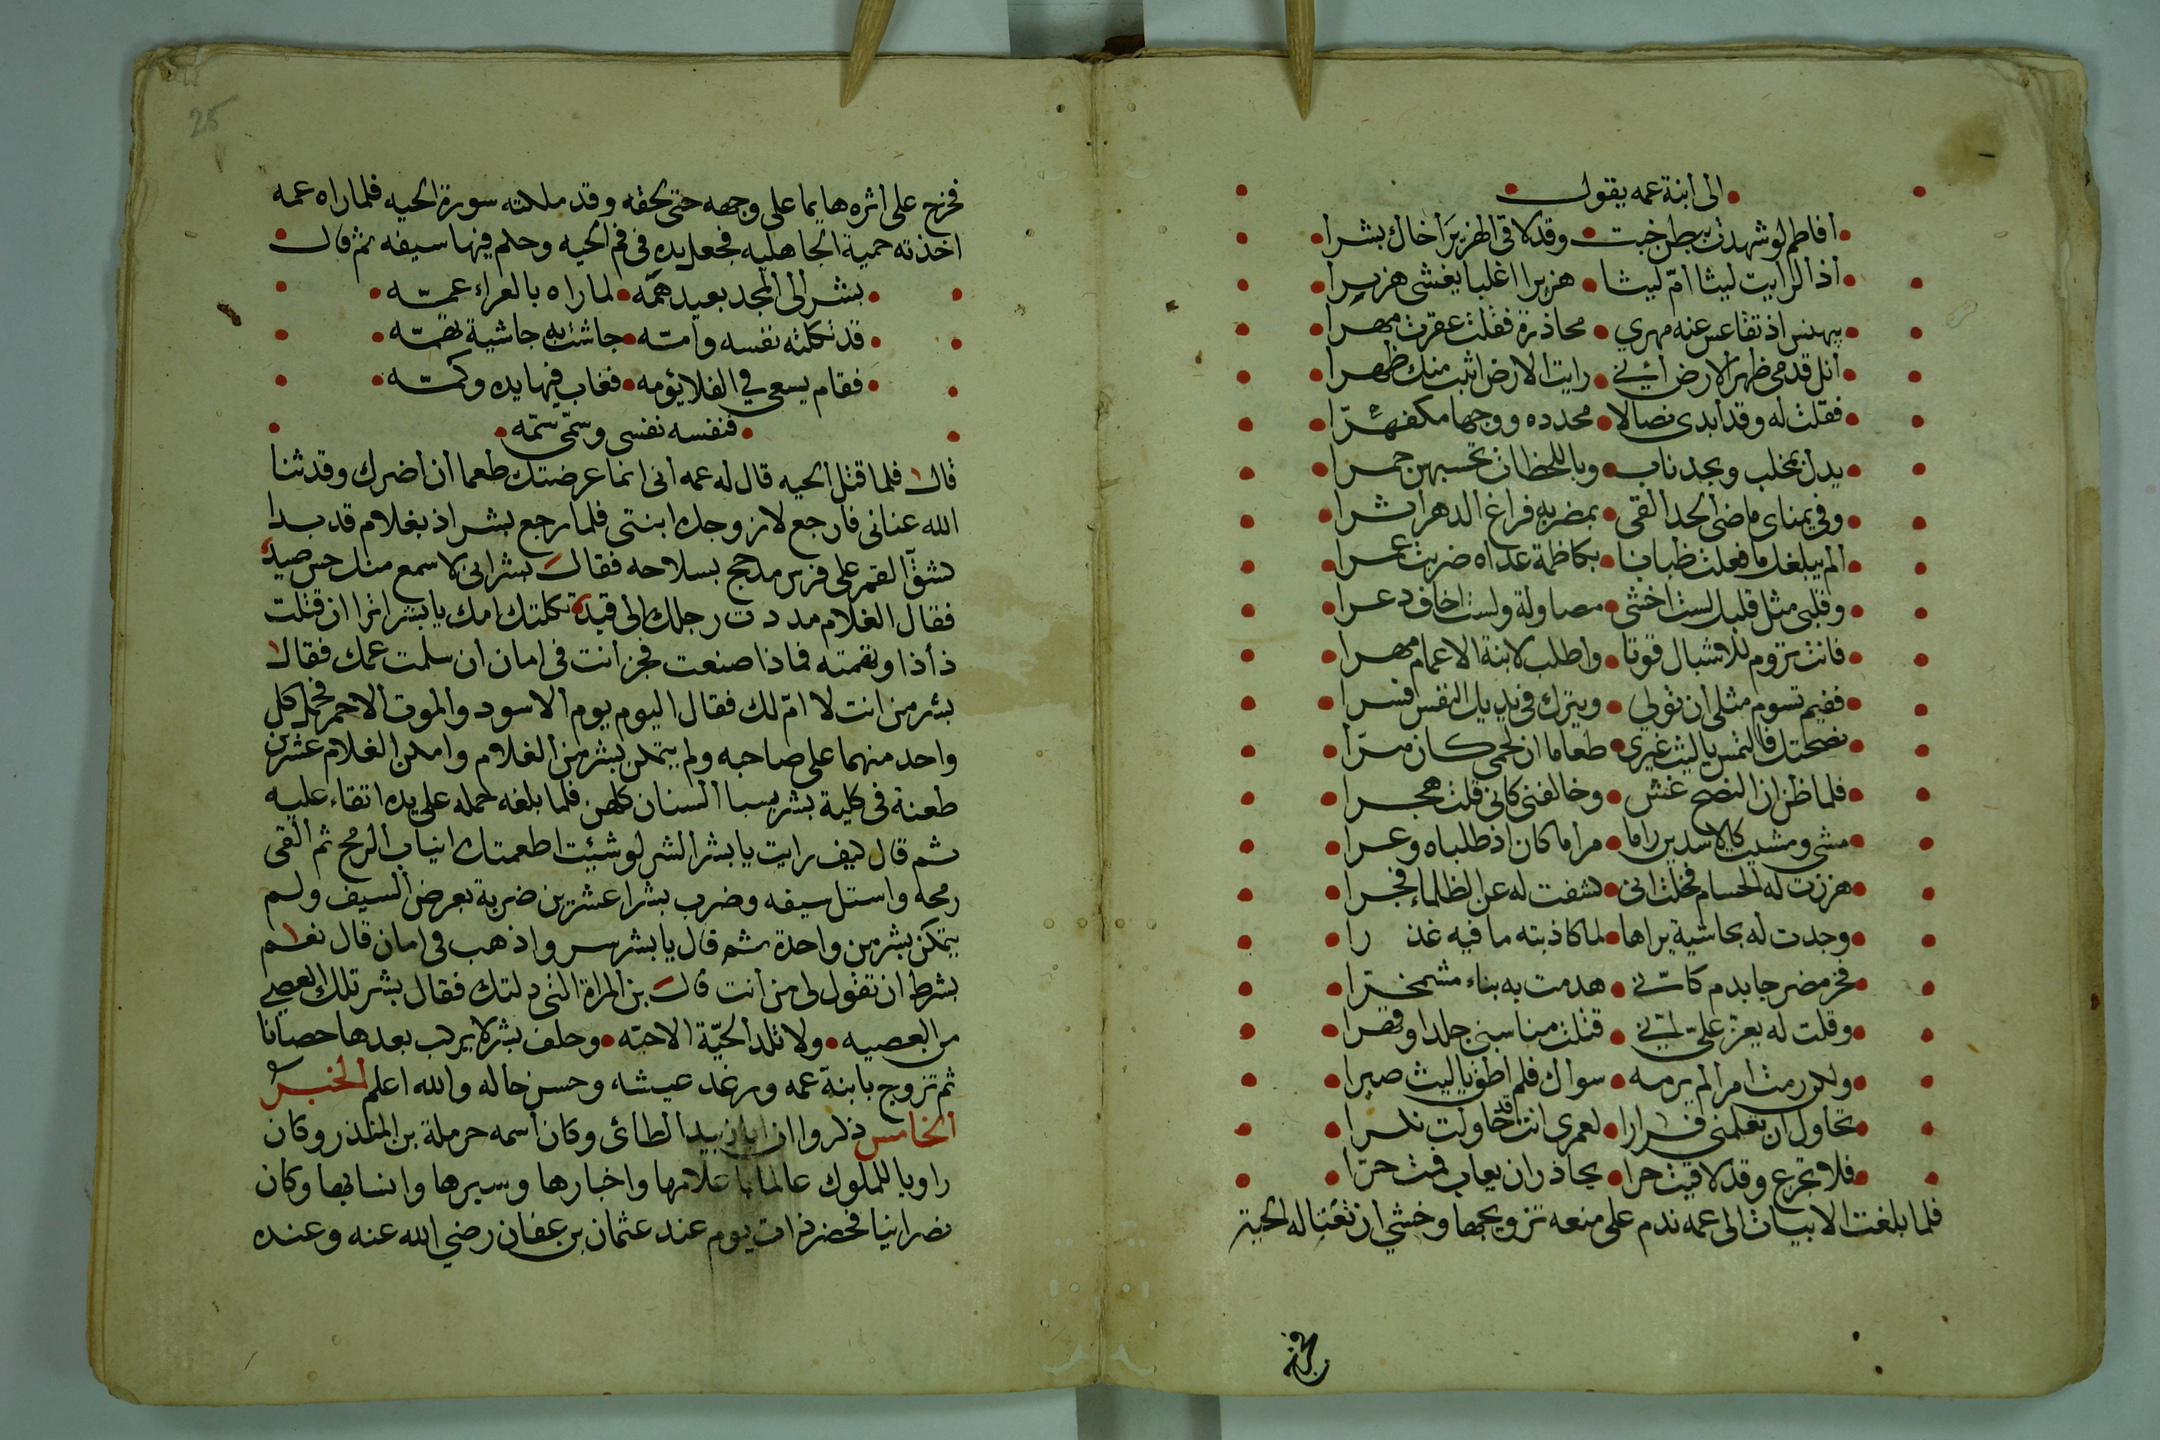 الى ابنة عمه يقول
أفاطم لو شهدت ببطن خبت وقد لاقى الهزبر أخاك بشرا
اذا لرايت ليثا أمّ ليثا هزبرا اغلبا يغشى هزبرا
يبهنس اذ تقاعس عنه مهري محاذرة فقلت عقرت مهرا
أنل قدمى ظهر الارض أني رايت الارض اثبت منك ظهرا
فقلت له وقد أبدى نصالا محدده ووجها مكفهرّا
يدل بمخلب وبحد ناب وباللحظات تحسبهن جمرا
وفي يمناى ماضي الحد القى بمضربه فراغ الدهر اثرا
الم يبلغك ما فعلت ظبانا بكاظمة غداه ضربت عمرا
وقلبى مثل قلبك لست اخشى مصاولة ولست اخاف دعرا
فانت تروم للاشبال قوتا واطلب لابنة الاعمام مهرا
ففيم تسوم مثلى ان تولي ويترك فى يديك النفس قسرا
نصحتك فالتمس يا ليث غيرى طعاما ان لحمى كان مرّا
فلما ظن ان النصح غش وخالفنى كانى قلت هجرا
مشى ومشيت كالاسدين راما مراما كان اذ طلباه وعرا
هززت له الحسام فخلت انى شفت له عن الظلماء فجرا
وجدت له بجاشية يراها لما كاذبته ما فيه غدرا
فخر مضرجا بدم كانّني هدمت به بناء مشمخرّا
وقلت له يعز علىّ انّي قتلت مناسبى جلدا وقهرا
ولكن رمت امرا لم يرمه سواك فلم اطق يا ليث صبرا
تحاول ان تعلمنى فرارا لعمرى انت قد حاولت نكرا
فلا تجزع وقد لاقيت حرا يحاذر ان يعاب فمت حرّا
فلما بلغت الابيات الى عمه ندم على منعه تزويجها وخشي ان تغتاله الحية
فخرج
25
فخرج على أثره هايما على وجهه حتى لحقه وقد ملكته سورة الحيه فلما راه عمه
اخذته حمية الجاهليه فجعل يده فى فم الحيه وحكم فيها سيفه ثم قال
بشر الى المجد بعيد همّه لما راه بالعراء عمّه
قد ثكلته نفسه وأمّه جاشت به جاشية تهمّه
فقام يسعى في الفلا يؤمه فغاب فيها يده وكمّه
فنفسه نفسى وسمّى سمّه
قال فلما قتل الحيه قال له عمه أنى انما عرضتك طعما أن أضرك وقد ثنا
الله عنانى فارجع لازوجك ابنتى فلما رجع بشر اذ بغلام قد بدا
كشقّ القمر على فرس مدجج بسلاحه فقال بشر انى لاسمع منك حس صيد
فقال الغلام مددت رجلك الى قيده ثكلتك امك يا بشر اثرا ان قتلت
ذأذا ونقمته فماذا صنعت فجز أنت فى امان أن سلمت عمك فقال
بشر من انت لا امّ لك فقال اليوم يوم الاسود والموت الاحمر فحمل كل
واحد منهما على صاحبه ولم يتمكن بشر من الغلام وامكن الغلام عشرين
طعنة فى كلية بشر بسبا السنان كلهن فلما بلغه حمله على يده اتقاء عليه
ثم قال كيف رايت يا بشر الشر لو شئت اطعمتك انياب الرمح ثم القى
رمحه واستل سيفه وضرب بشرا عشرين ضربة بعرض السيف ولم
يتمكن بشر من واحدة ثم قال يا بشر سر واذهب فى امان قال نعم
بشرط ان تقول لى من أنت قال بن المراة التى دلتك فقال بشر تلك العصى
من العصيه ولا تلد الحيّة الا حيّه وحلف بشر لا يركب بعدها حصانا
ثم تزوج بابنة عمه ورغد عيشه وحسن حاله والله اعلم الخبر
الخامس ذكروا ان ابا زبيد الطائ وكان أسمه حرملة بن المنذر وكان
راويا للملوك عالما باعلامها واخبارها وسيرها وانسابها وكان
نصرانيا فحضر ذات يوم عند عثمان بن عفان رضي الله عنه وعنده